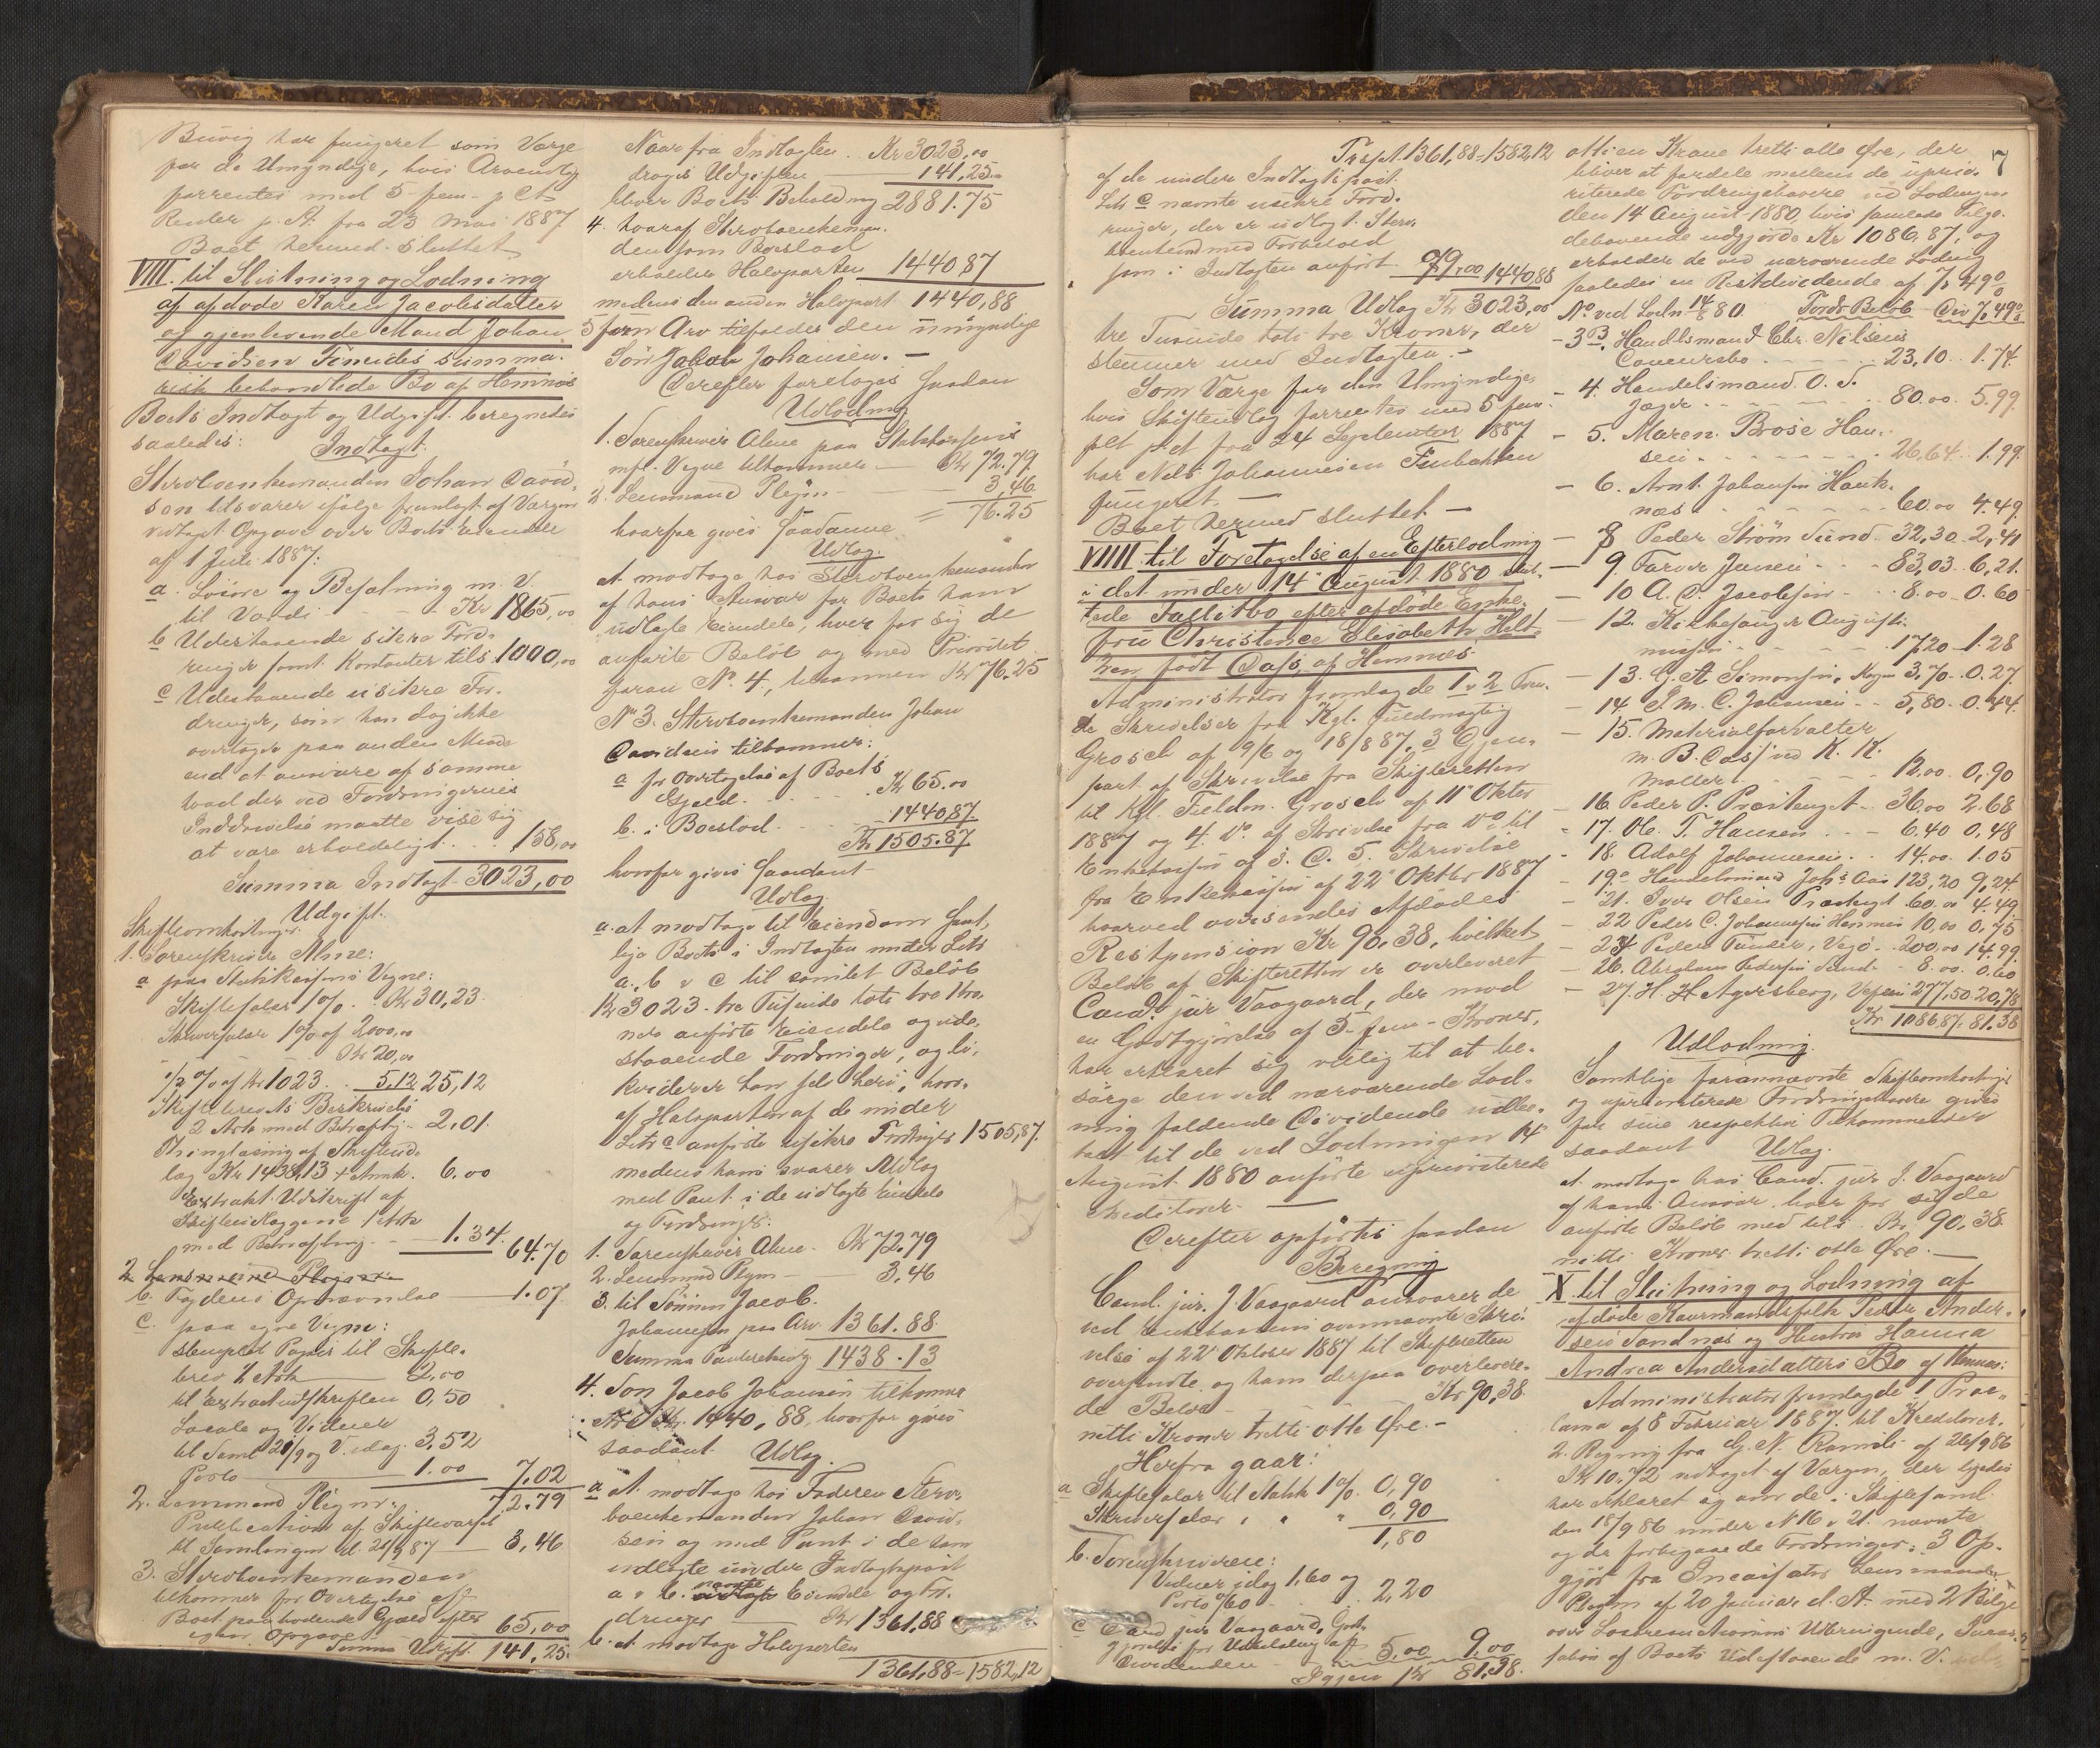 Buvig har fungeret som Værge
for de Umyndige, hvis Arvendlæg
forrentes med 5 - fem - p Ct.
Renter p. A. fra 23 Mai 1887
Boet hermed sluttet
VIII. til Slutning og Lodning
af afdøde Karen Jacobsdatter
og gjenlevende Mand Johan
Davidsen Fineides summa-
risk behandlede Bo af Hemnæs
Boets Indtægt og Udgift beregnedes
saaledes: Indtægt.
Stervboenkemanden Johan David-
sen tilsvarer ifølge fremlagt af Værgen
vedtaget Opgave over Boets Eiendele
af 1 Juli 1887:
a. Løsøre og Besætning m. V.
til Værdi - - - Kr 1865,00
b Udestaaende sikre Ford-
ringer samt Kontanter tils. 1000,00
c Udestaaende usikre For-
dringer, som han dog ikke
overtager paa anden Maade
end at ansvare af samme
hvad der ved Fordringernes
Inddrivelse maatte vise sig
at være erholdeligt . . . 158,00
Summa Indtægt 3023,00
Udgift.
Skifteomkostninger
1. Sorenskriver Alme:
a paa Statskassens Vegne:
Skiftesalær 1% . Kr 30,23
Skriversalær 1% af 2000,00
- " - " - Kr 20,00
1/2 % af Kr 1023 . . 5,12 25,12
Skiftebrevets Beskrivelse
2 Ark med Bekræftg. - 2,01
Thinglæsning af Skifteud-
læg Kr 1438,13 + Anmk. 6.00
Extrakt Udskrift af
Skifteindlæggene 1 Ark
med Bekræftning - - 1.34. 64.70
2 Lensmand Plejm
b. Fogdens Opnævnelse - 1.07
c. paa egne Vegne:
stemplet Papir til Skifte-
brev 1/2 Ark - 2,00
til Extractudskriften 0,50
Locale og Vidner
til Saml 21/9 og V. idag. 3,52
Porto - 1.00 7,02
72.79
2. Lensmand Plejm:
Publication af Skiftevarsel
til Samlingen d. 21/9 87 - 3,46
3. Stervboenkemanden
tilkommer for Overtagelse af
Boet paahvilende Gjæld efter
egen Opgave 65,00
Summa Udgift 141,25.
Naar fra Indtægten . . Kr 3023,00
drages Udgiften - 141,25
bliver Boets Beholdning 2881.75
4. hvoraf Stervboenkeman-
den som Boeslod
erholder Halvparten 1440,87
medens den anden Halvpart 1440,88
5 som Arv tilfalder den umyndige
Søn Jakob Johansen. -
Derefter foretoges saadan
Udlodning
1. Sorenskriver Alme paa Statskassens
mfl. Vegne tilkommer - Kr 72.79
2. Lensmand Plejm - 3,46
hvorfor gives saadanne = 76.25
Udlæg.
at modtage hos Stervboenkemanden
af hans Ansvar for Boets ham
udlagte Eiendele, hver for sig de
anførte Beløb og med Prioritet
foran No. 4, tilsammen Kr 76.25
No 3. Stervboenkemanden Johan
Davidsen tilkommer:
a for Overtagelse af Boets
Gjæld . . . . Kr 65.00
b. i Boeslod . . . 1440,87
Kr 1505.87
hvorfor gives saadant
Udlæg
a. at modtage til Eiendom samt-
lige Boets i Indtægten under Litr
a, b & c til samlet Beløb
Kr 3023. tre Tusinde toti tre Kro-
ner anførte Eiendele og ude-
staaende Fordringer, og li-
kviderer han sel herí, hvor-
af Halvparten af de under
Litr c anførte usikre Fordringer 1505,87.
medens hans svarer Udlæg
med Pant i de udlagte Eiendele
og Fordringer.
1. Sorenskriver Alme - Kr 72.79
2. Lensmand Plejm - 3,46
3. til Sønnen Jacob.
Johansen paa Arv. 1361.88
Summa Panteheftelse 1438.13
4. Søn Jacob Johansen tilkommer
Arv Kr. 1440,88, hvorfor gives
saadant Udlæg.
a at modtage hos Faderen Sterv-
boenkemanden Johan David-
sen og med Pant i de ham
udlagte under Indtægtspost
a & b. nævnte Eiendele og For-
dringer - Kr 1361,88
b. at modtage Halvparten
1361,88 = 1582,12
7
Trspt. 1361,88 = 1582,12
af de under Indtægtspost
Litr c nævnte usikre Ford-
ringer, der er udlagt Sterv-
boenkemd med Forbehold
som i Indtægten anført 79,00 1440,88
Summa Udlæg Kr 3023,00
tre Tusinde toti tre Kroner, der
stemmer med Indtægten. -
Som Værge for den Umyndige,
hvis Skifteudlæg forrentes med 5 fem
pCt p. A fra 24 September 1887
har Nels Johannesen Finbakken
fungeret -
Boet hermed sluttet -
VIIII til Foretagelse af en Efterlodning
i det under 14 August 1880 slut-
tede Fallitbo efter afdøde Enke-
fru Christence Elisabeth Holt-
zen født Cass, af Hemnæs.
Administrator fremlagde 1 & 2 Tven-
de Skrivelser fra Kgl. Fuldmægtig
Grosch af 9/6 og 18/8 87, 3 Gjen-
part af Skrivelse fra Skifteretten
til Kgl. Fuldm. Grosch af 11 Oktbr
1887 og 4. Do. af Skrivelse fra Do til
Enkekassen af s. D. 5. Skrivelse
fra Enkekassen af 22 Oktbr 1887
hvorved oversendes Afdødes
Restpension Kr 90,38, hvilket
Beløb af Skifteretten er overleveret
Cand. jur Vaagaard, der mod
en Godtgjørelse af 5 - fem - Kroner,
har erklæret sig villig til at be-
sørge den ved nærværende Lod-
ning faldende Dividende udbe-
talt til de ved Lodningen 14
August 1880 anførte uprioriterede
Kreditorer. -
Derefter opførtes saadan
Beregning
Cand. jur. J. Vaagaard ansvarer de
ved Enkekassens ovennævnte Skri-
velse af 22 Oktober 1887 til Skifteretten
oversendte og ham derpaa overlevere-
de Beløb - - Kr 90,38.
nitti Kroner tretti otte Øre. -
Herfra gaar:
a Skiftesalær til Statsk 1% 0,90
Skriversalær " " " 0,90
1,80
b. Sorenskriveren:
Vidner idag 1,60 og
Porto 0/60 2,20
c Cand jur Vaagaard, Godt-
gjørelse for Udbetaling af
Dividenden - 5,00 9.00
Igjen Kr 81.38.
otti en Krone tretti otte Øre, der
bliver at fordele mellem de uprio-
riterede Fordringshavere ved Lodningen
den 14 August 1880, hvis samlede Tilgo-
dehavende udgjorde Kr 1086,87, og
erholder de ved nærværende Lodning
saaledes en Restdividende af 7,49%
No ved Lodn 14/8 80. Fords Beløb Div 7,49%
- 3 B. Handelsmand Chr. Nilsens
Concursbo - - - - - 23,10 . . 1.74
- 4. Handelsmand O. S.
Jæger - - - - - 80.00. 5.99
- 5. Maren Brose Han-
sen - - - - - 26,64 . 1.99
- 6. Arnt Johansen Hauk-
næs - - - - 60.00 4.49
- 8 Peder Strøm Sund. 32,30 2,41
- 9. Farver Jensen - - - 83,03 6,21.
- 10 A. C. Jacobsen - - 8.00 0.60
- 12. Kirkesanger Augusti-
nusen - - - - 17,20 1.28
- 13. G. A Simonsen, Mojen 3,70 0.27
- 14 J. M. C. Johansen - - 5,80. 0.44
- 15. Materialforvalter
M. B. Cass ved K. K.
Møller - - - - 12.00 0,90
- 16. Peder P. Præstenget - 36,00 2.68
- 17. Ole T. Hansen . . - 6.40 0,48
- 18. Adolf Johannesen . . 14.00. 1.05
- 19. Handelsmand Johs Aas 123,20 9,24
- 21. Iver Olsen Præsteng 60.00 4.49
- 22 Peder C. Johannesen Hemnes 10,00 0,75
- 24 Peder Tünder, Vegø - 200,00 14.99
- 26. Abraham Pedersen Sund - 8.00. 0.60
- 27. H. H Agersborg, Vefsen 277,50. 20,78
Kr 1086,87. 81.38
Udlodning.
Samtlige forannævnte Skifteomkostninger
og uprioriterede Fordringshavere gives
for sine respektive Tilkommender
saadant Udlæg.
at modtage hos Cand. jur J. Vaagaard
af hans Ansvar hver for sig de
anførte Beløb med tils. Kr 90,38
nitti Kroner tretti otte Øre. -
X til Slutning og Lodning af
afdøde Kaarmandsfolk Peder Ander-
sens Sandnæs og Hustru Hanna
Andrea Andersdatters Bo af Hemnæs:
Administrator fremlagde 1 Proc-
lama af 8 Februar 1887. til Kreditorer.
2. Regning fra G. N. Ramili af 26/9 86
Kr 10,72 vedtaget af Værgen, der ligedes
har erklæret sig om de i Skiftesaml
den 18/9 86 under N 16 & 21. nævnte
og da forbigaaede Fordringer. 3 Op-
gjør fra Incassator Lensmand
Plejm af 20 Januar d. A. med 2 Bilge
over Løsøreauktionens Udbringende, Incas-
sation af Boets Udestaaende m. V.